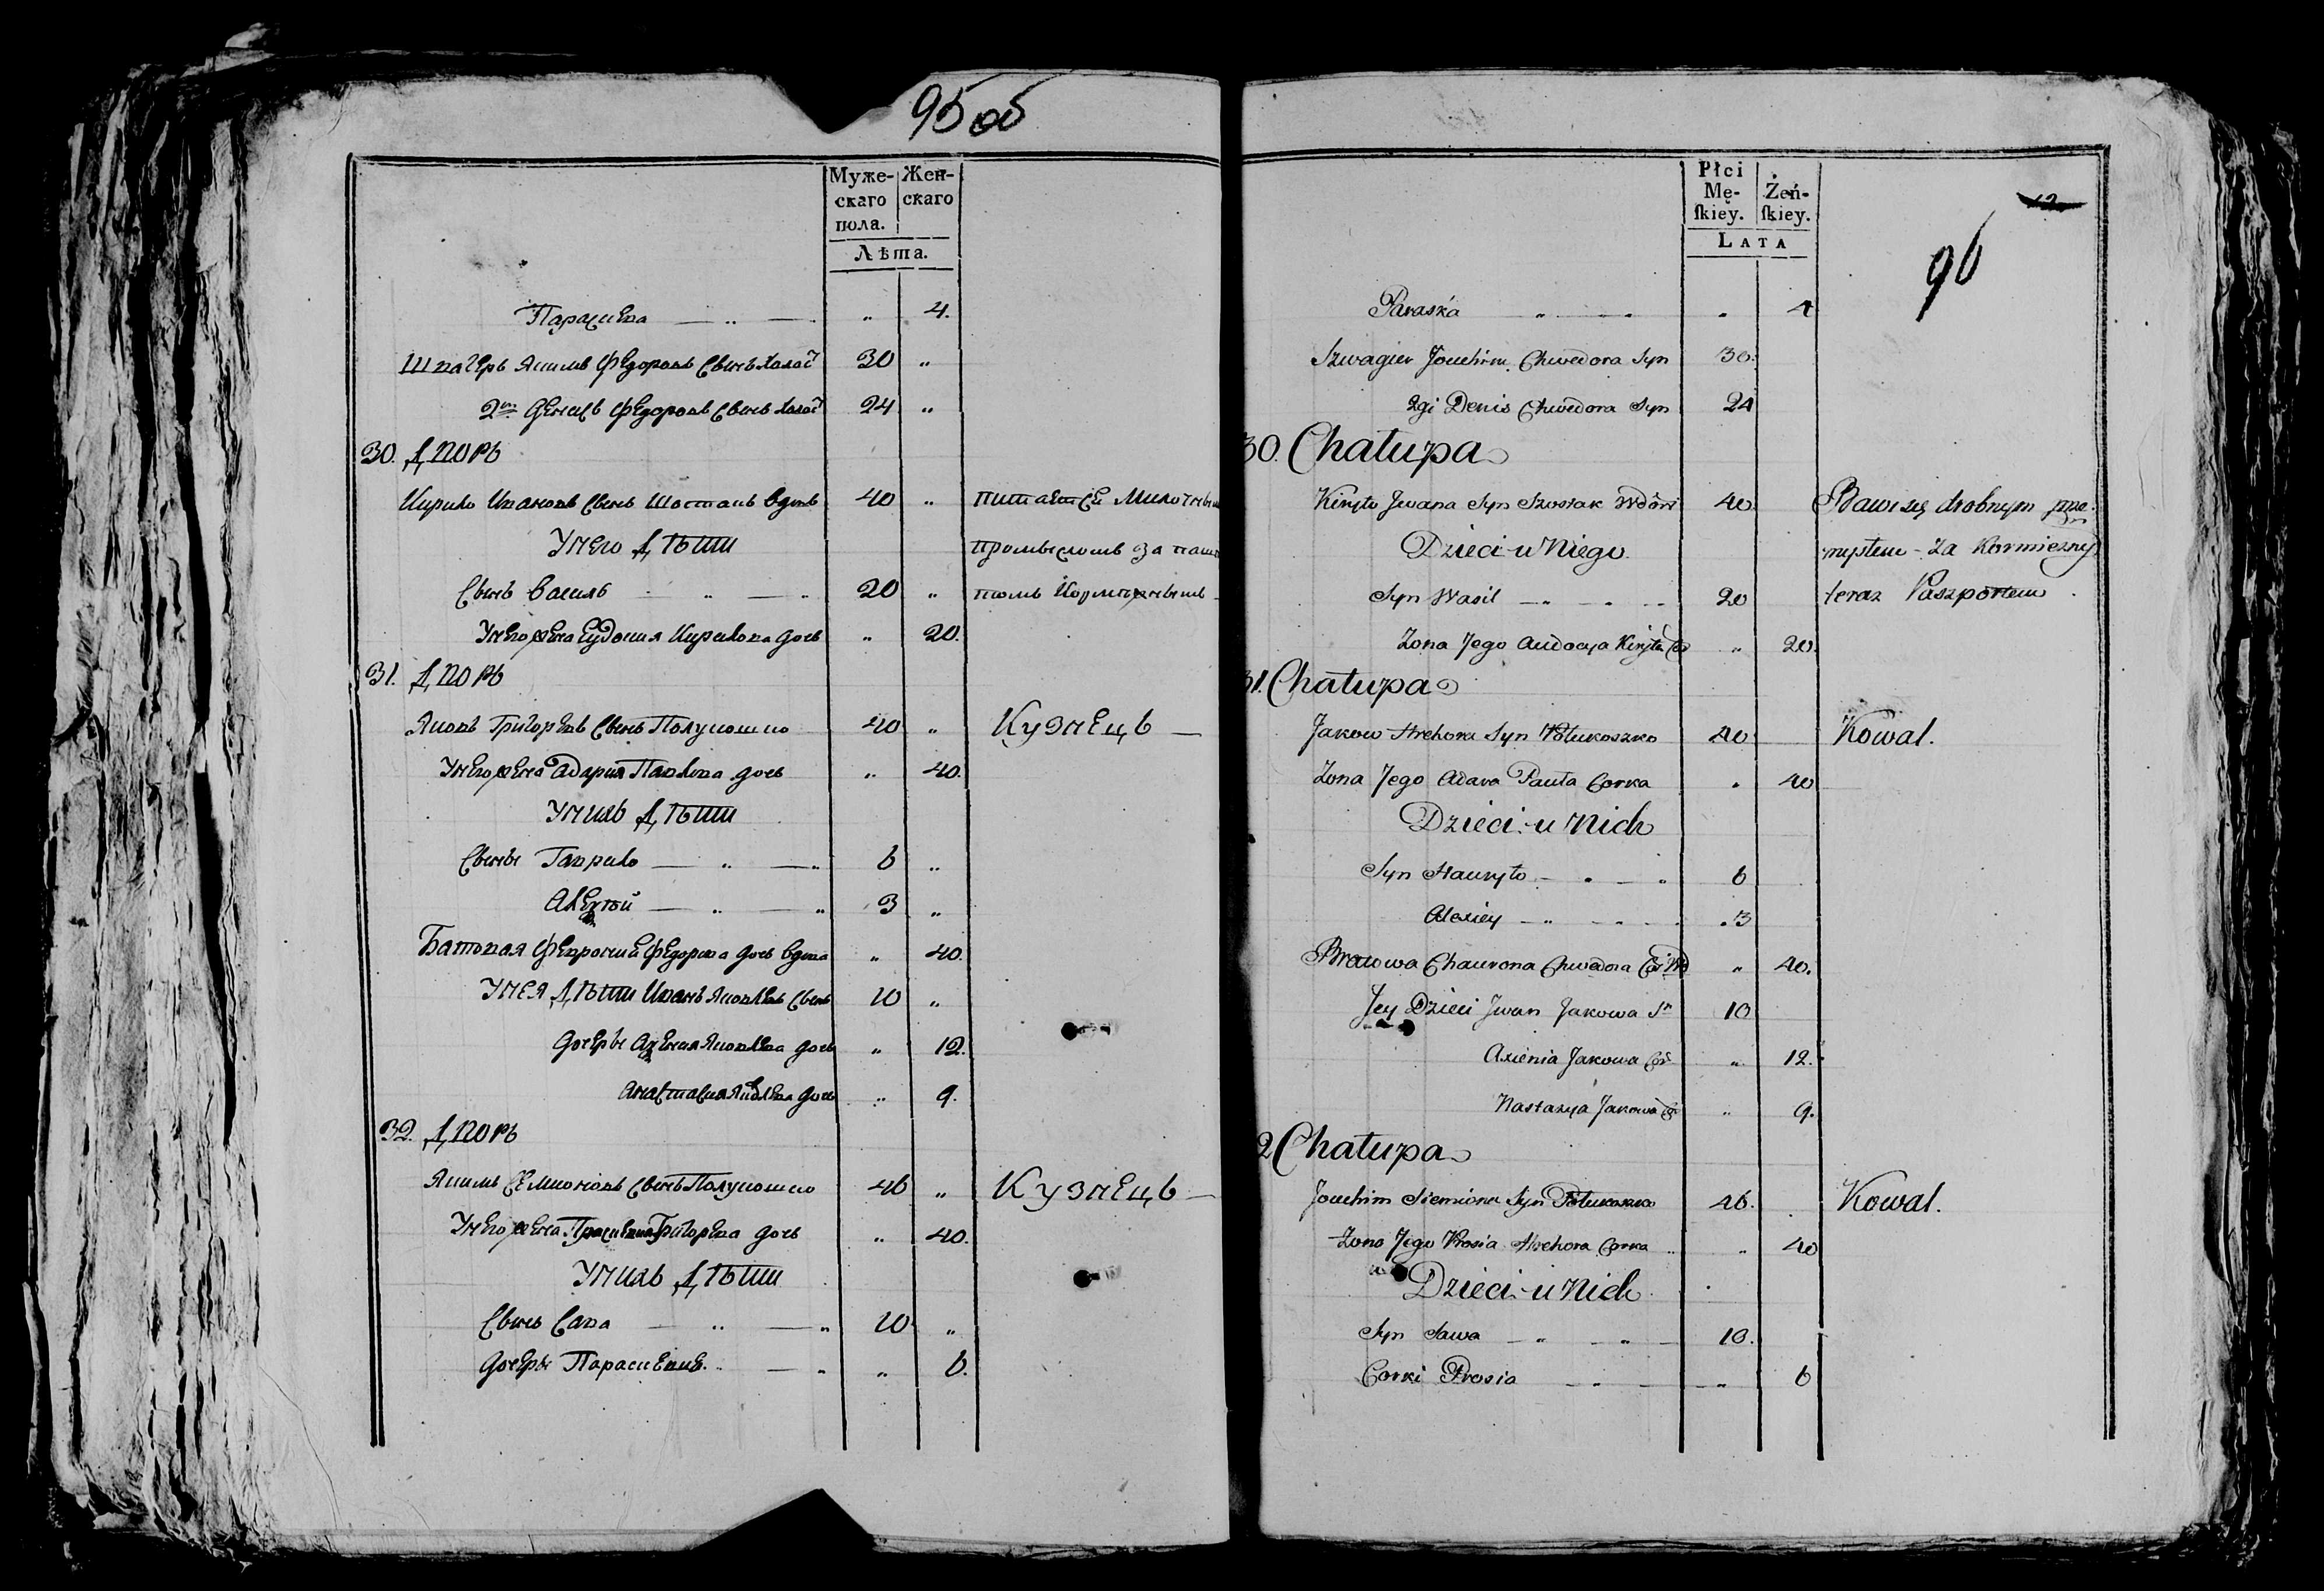 95 об
Муже-
скаго
пола.
Жен-
скаго
Лѣта.
Парасиева — „ — „ 4.
Швагеръ Якимъ Федоровъ Сынъ холост 30 „
2й Денисъ Федоровъ Сынъ холост 24 „
30. Дворъ
Кирило Ивановъ Сынъ Шостакъ вдовъ 40 „ питается Милочнымъ
У него Дѣти промысломъ за пашп
Сынъ Василь — „ — „ 20 „ томъ Кормежнымъ
У него жена Еудокия Кирилова дочь „ 20.
31. Дворъ
Яковъ Григорьевъ Сынъ Полукошко 40 „ Кузнецъ —
У него жена Адария Павлова дочь „ 40.
У нихъ Дѣти
Сыны Гаврило — „ — „ 6 „
Алехѣй — „ — „ 3 „
Батовая Феврония Федорова дочь вдова „ 40.
У нея Дѣти Иванъ Яковлевъ Сынъ 10 „
Дочеры Ахения Яковлева дочь „ 12.
Анастасия Яковлева дочь „ 9.
32. Дворъ
Якимъ Семионовъ Сынъ Полукошко 46 „ Кузнецъ —
У него жена Григорева дочь „ 40.
У нихъ Дѣти
Сынъ Сава — „ — „ 10 „
Дочеры Парасиевия „ — „ 6.
Płci
Mę-
ſkiey.
Żeń-
ſkiey.
LATA
12
96
Paraska „ — „ „ 4
Szwagier Jouchim Chwedora Syn 30.
2gi Denis Chwedora Syn 24
30. Chałupa
Kiryło Jwana Syn Szostak Wdow 40. Bawi się drobnym prze-
Dzieci u Niego mysłem - za Karmieżny
Syn Wasil — „ — „ 20 teraz Paszportem.
Zona Jego Audocya Kiryła Co „ 20.
31. Chałupa
Jakow Hrehora Syn Połukoszko 40 Kowal.
Zona Jego Adara Pauła Corka „ 40
Dzieci u Nich
Syn Hauryło — „ — „ 6
Alexiey — „ — „ 3
Bratowa Chaurona Chwedora Cor Wd „ 40.
Jey Dzieci Jwan Jakowa Sn 10
Axienia Jakowa Cor „ 12.
Nastazya Jakowa Co „ 9.
2 Chałupa
Jouchim Siemiona Syn Połukoszko 46. Kowal.
Zona Jego Prosia Hrehora Corka „ 40
Dzieci u Nich
Syn Sawa — „ — „ 10.
Corki Prosia — „ 6